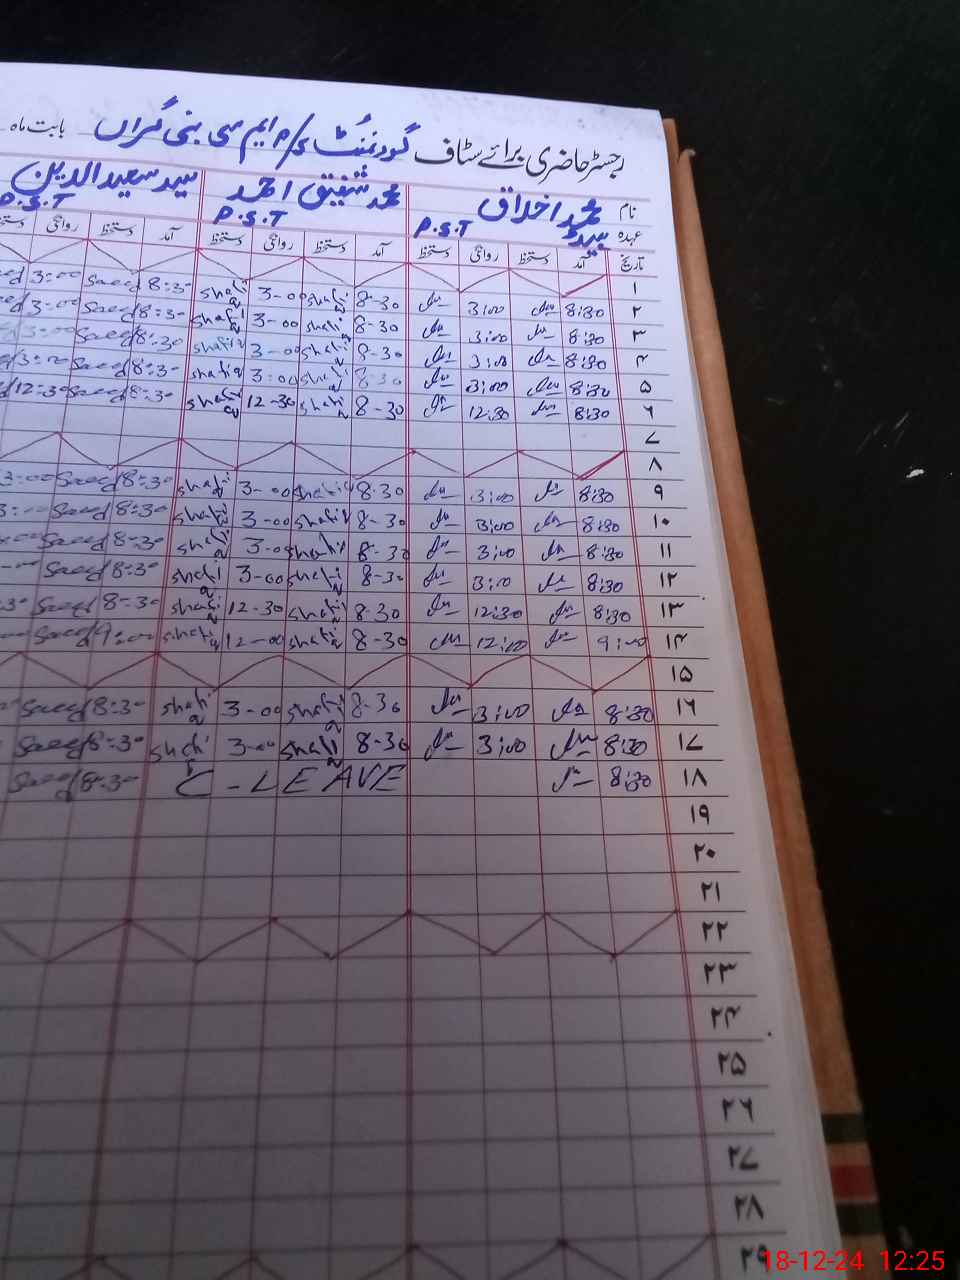 رجسٹر حاضری برائے سٹاف گورنمنٹ م/ایم سی بنی گراں بابت ماہ
نام سید محمد اخلاق محمد شفیق احمد سید سعید الدین
عہدہ P.S.T P.S.T P.S.T
تاریخ آمد دستخط روانگی دستخط آمد دستخط روانگی دستخط آمد دستخط روانگی دستخط
۱
۲ 8:30 3:00 8-30 shafiq 3-00 shafiq 8:30 Saeed 3:00
۳ 8:30 3:00 8-30 shafiq 3-00 shafiq 8:30 Saeed 3:00
۴ 8:30 3:00 8-30 shafiq 3-00 shafiq 8:30 Saeed 3:00
۵ 8:30 3:00 8-30 shafiq 3:00 shafiq 8:30 Saeed 3:00
۶ 8:30 12:30 8-30 shafiq 12-30 shafiq 8:30 Saeed 12:30
۷
۸
۹ 8:30 3:00 8-30 shafiq 3-00 shafiq 8:30 Saeed 3:00
۱۰ 8:30 3:00 8-30 shafiq 3-00 shafiq 8:30 Saeed
۱۱ 8:30 3:00 8-30 shafiq 3-00 shafiq 8:30 Saeed
۱۲ 8:30 3:00 8-30 shafiq 3-00 shafiq 8:30 Saeed
۱۳ 8:30 12:30 8-30 shafiq 12-30 shafiq 8:30 Saeed
۱۴ 9:00 12:00 8-30 shafiq 12-00 shafiq 9:00 Saeed
۱۵
۱۶ 8:30 3:00 8-30 shafiq 3-00 shafiq 8:30 Saeed
۱۷ 8:30 3:00 8-30 shafiq 3-00 shafiq 8:30 Saeed
۱۸ 8:30 C-LEAVE 8:30 Saeed
۱۹
۲۰
۲۱
۲۲
۲۳
۲۴
۲۵
۲۶
۲۷
۲۸
۲۹
18-12-24 12:25